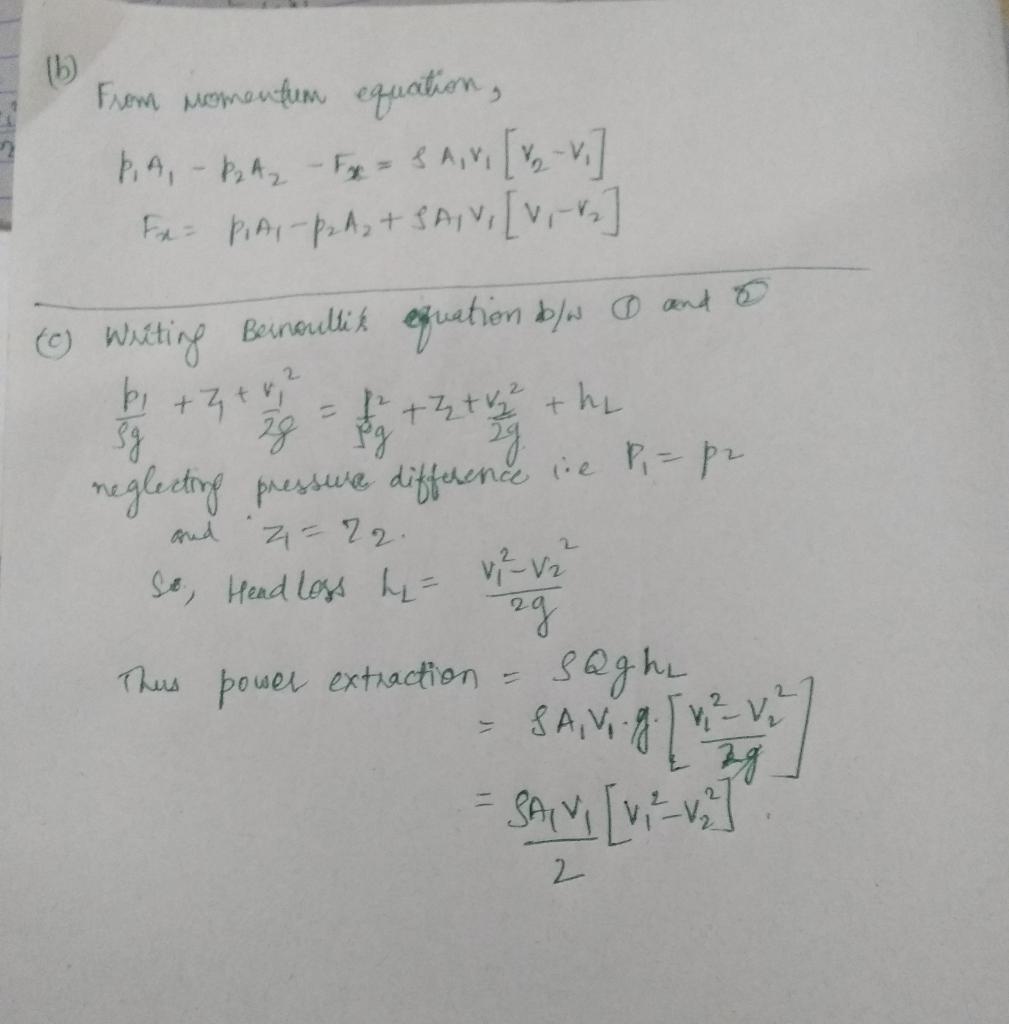 (b)
From momentum equation,
p₁A₁ - p₂A₂ - Fₓ = ρA₁V₁[V₂-V₁]
Fₓ = p₁A₁-p₂A₂+ρA₁V₁[V₁-V₂]
(c) Writing Bernoulli's equation b/w ① and ②
p₁/ρg + z₁ + v₁²/2g = p₂/ρg + z₂ + v₂²/2g + hL
neglecting pressure difference i.e P₁ = p₂
and z₁ = z₂.
So, Head loss hL = (v₁²-v₂²)/2g
Thus power extraction = ρQghL
= ρA₁V₁.g.[(v₁²-v₂²)/2g]
= ρA₁V₁/2 [v₁²-v₂²].